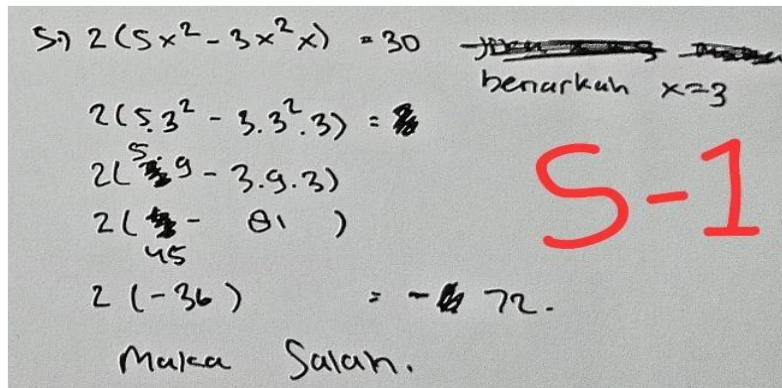 5.) 2(5x² - 3x²x) = 30
benarkah x=3
2(5.3² - 3.3².3) =
2(5.9 - 3.9.3)
2(45 - 81)
2(-36) = -72.
Maka Salah.
S-1